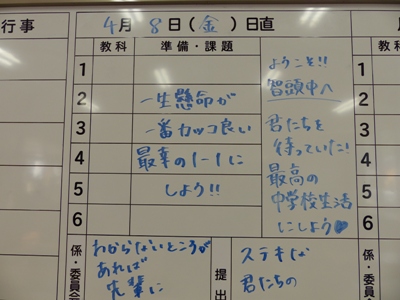 行事
4月8日(金)日直
教科 準備・課題
1
2
3
4
5
6
一生懸命が
一番カッコ良い
最幸の1-1に
しよう!!
ようこそ!!
智頭中へ
君たちを
待っていた!
最高の
中学校生活
にしよう
1
2
3
4
5
6
係・委員会
わからないところが
あれば
先輩に
提出
ステキな
君たちの